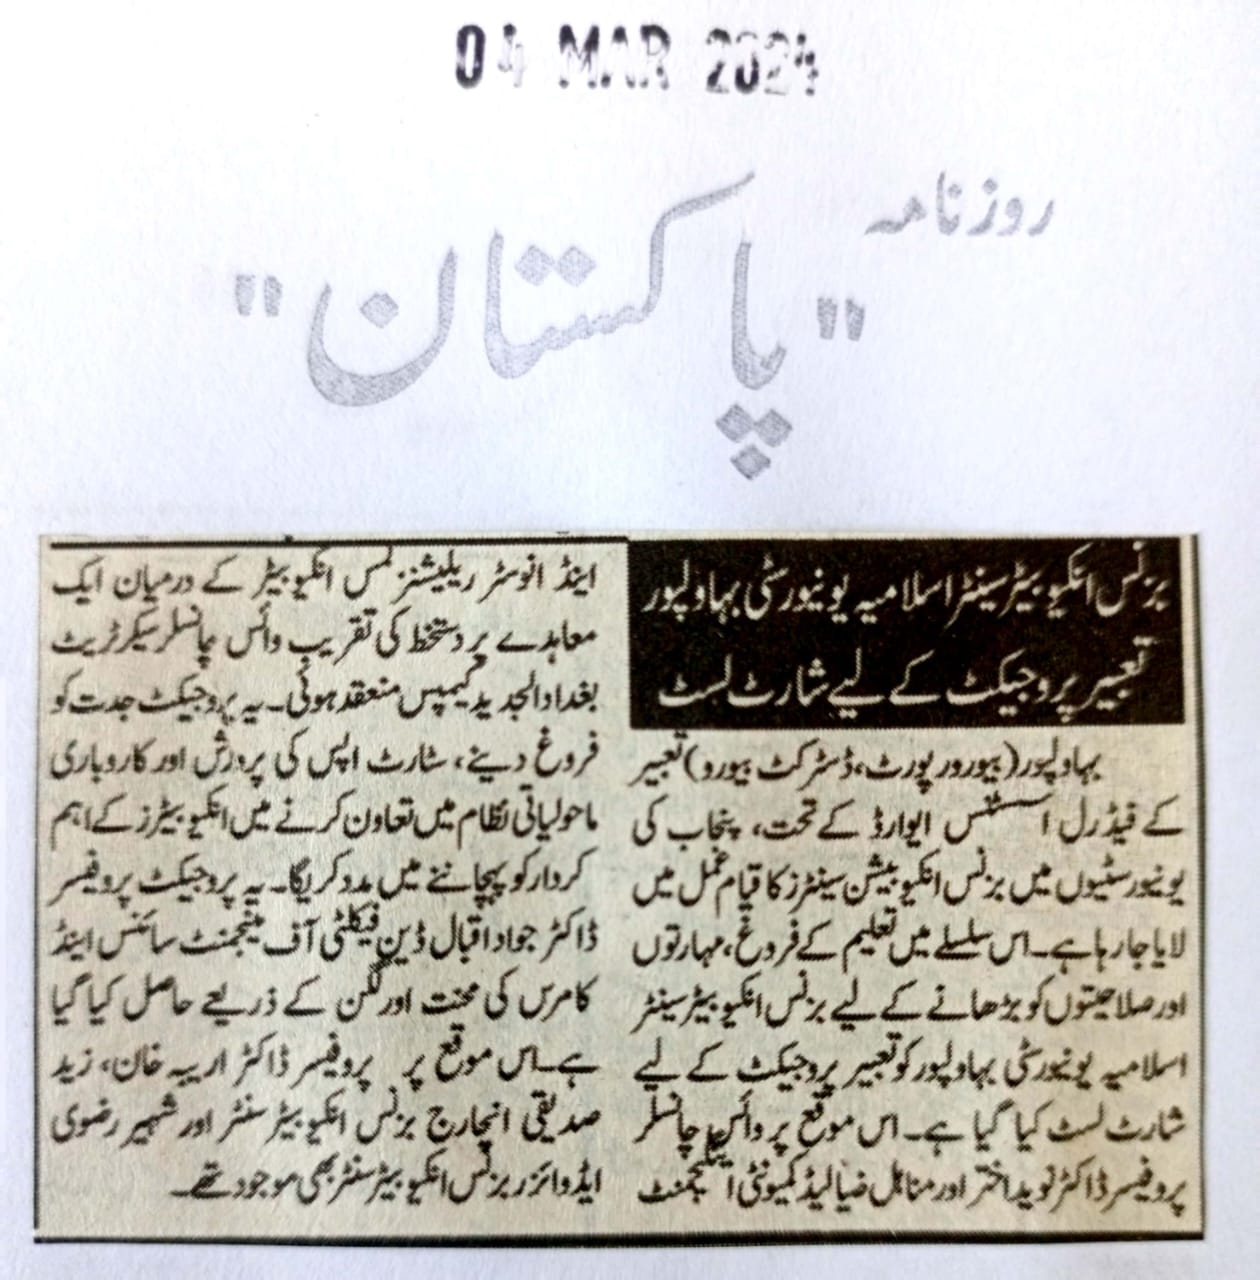 04 MAR 2024
روزنامہ
"پاکستان"
بزنس انکیوبیٹر سینٹر اسلامیہ یونیورسٹی بہاولپور
تعبیر پروجیکٹ کے لیے شارٹ لسٹ
بہاولپور (بیورورپورٹ، ڈسٹرکٹ بیورو) تعبیر
کے فیڈرل اسسٹنس ایوارڈ کے تحت، پنجاب کی
یونیورسٹیوں میں بزنس انکیوبیشن سینٹرز کا قیام عمل میں
لایا جا رہا ہے۔ اس سلسلے میں تعلیم کے فروغ، مہارتوں
اور صلاحیتوں کو بڑھانے کے لیے بزنس انکیوبیٹر سینٹر
اسلامیہ یونیورسٹی بہاولپور کو تعبیر پروجیکٹ کے لیے
شارٹ لسٹ کیا گیا ہے۔ اس موقع پر وائس چانسلر
پروفیسر ڈاکٹر نوید اختر اور مناہل ضیا لیڈ کمیونٹی
اینڈ انوسٹر ریلیشنز لمس انکیوبیٹر کے درمیان ایک
معاہدے پر دستخط کی تقریب وائس چانسلر سیکرٹریٹ
بغداد الجدید کیمپس منعقد ہوئی۔ یہ پروجیکٹ جدت کو
فروغ دینے، سٹارٹ اپس کی پرورش اور کاروباری
ماحولیاتی نظام میں تعاون کرنے میں انکیوبیٹرز کے اہم
کردار کو پہچاننے میں مدد کریگا۔ یہ پروجیکٹ پروفیسر
ڈاکٹر جواد اقبال ڈین فیکلٹی آف مینجمنٹ سائنس اینڈ
کامرس کی محنت اور لگن کے ذریعے حاصل کیا گیا
ہے۔ اس موقع پر پروفیسر ڈاکٹر اریبہ خان، زید
صدیقی انچارج بزنس انکیوبیٹر سنٹر اور شہیر رضوی
ایڈوائزر بزنس انکیوبیٹر سنٹر بھی موجود تھے۔